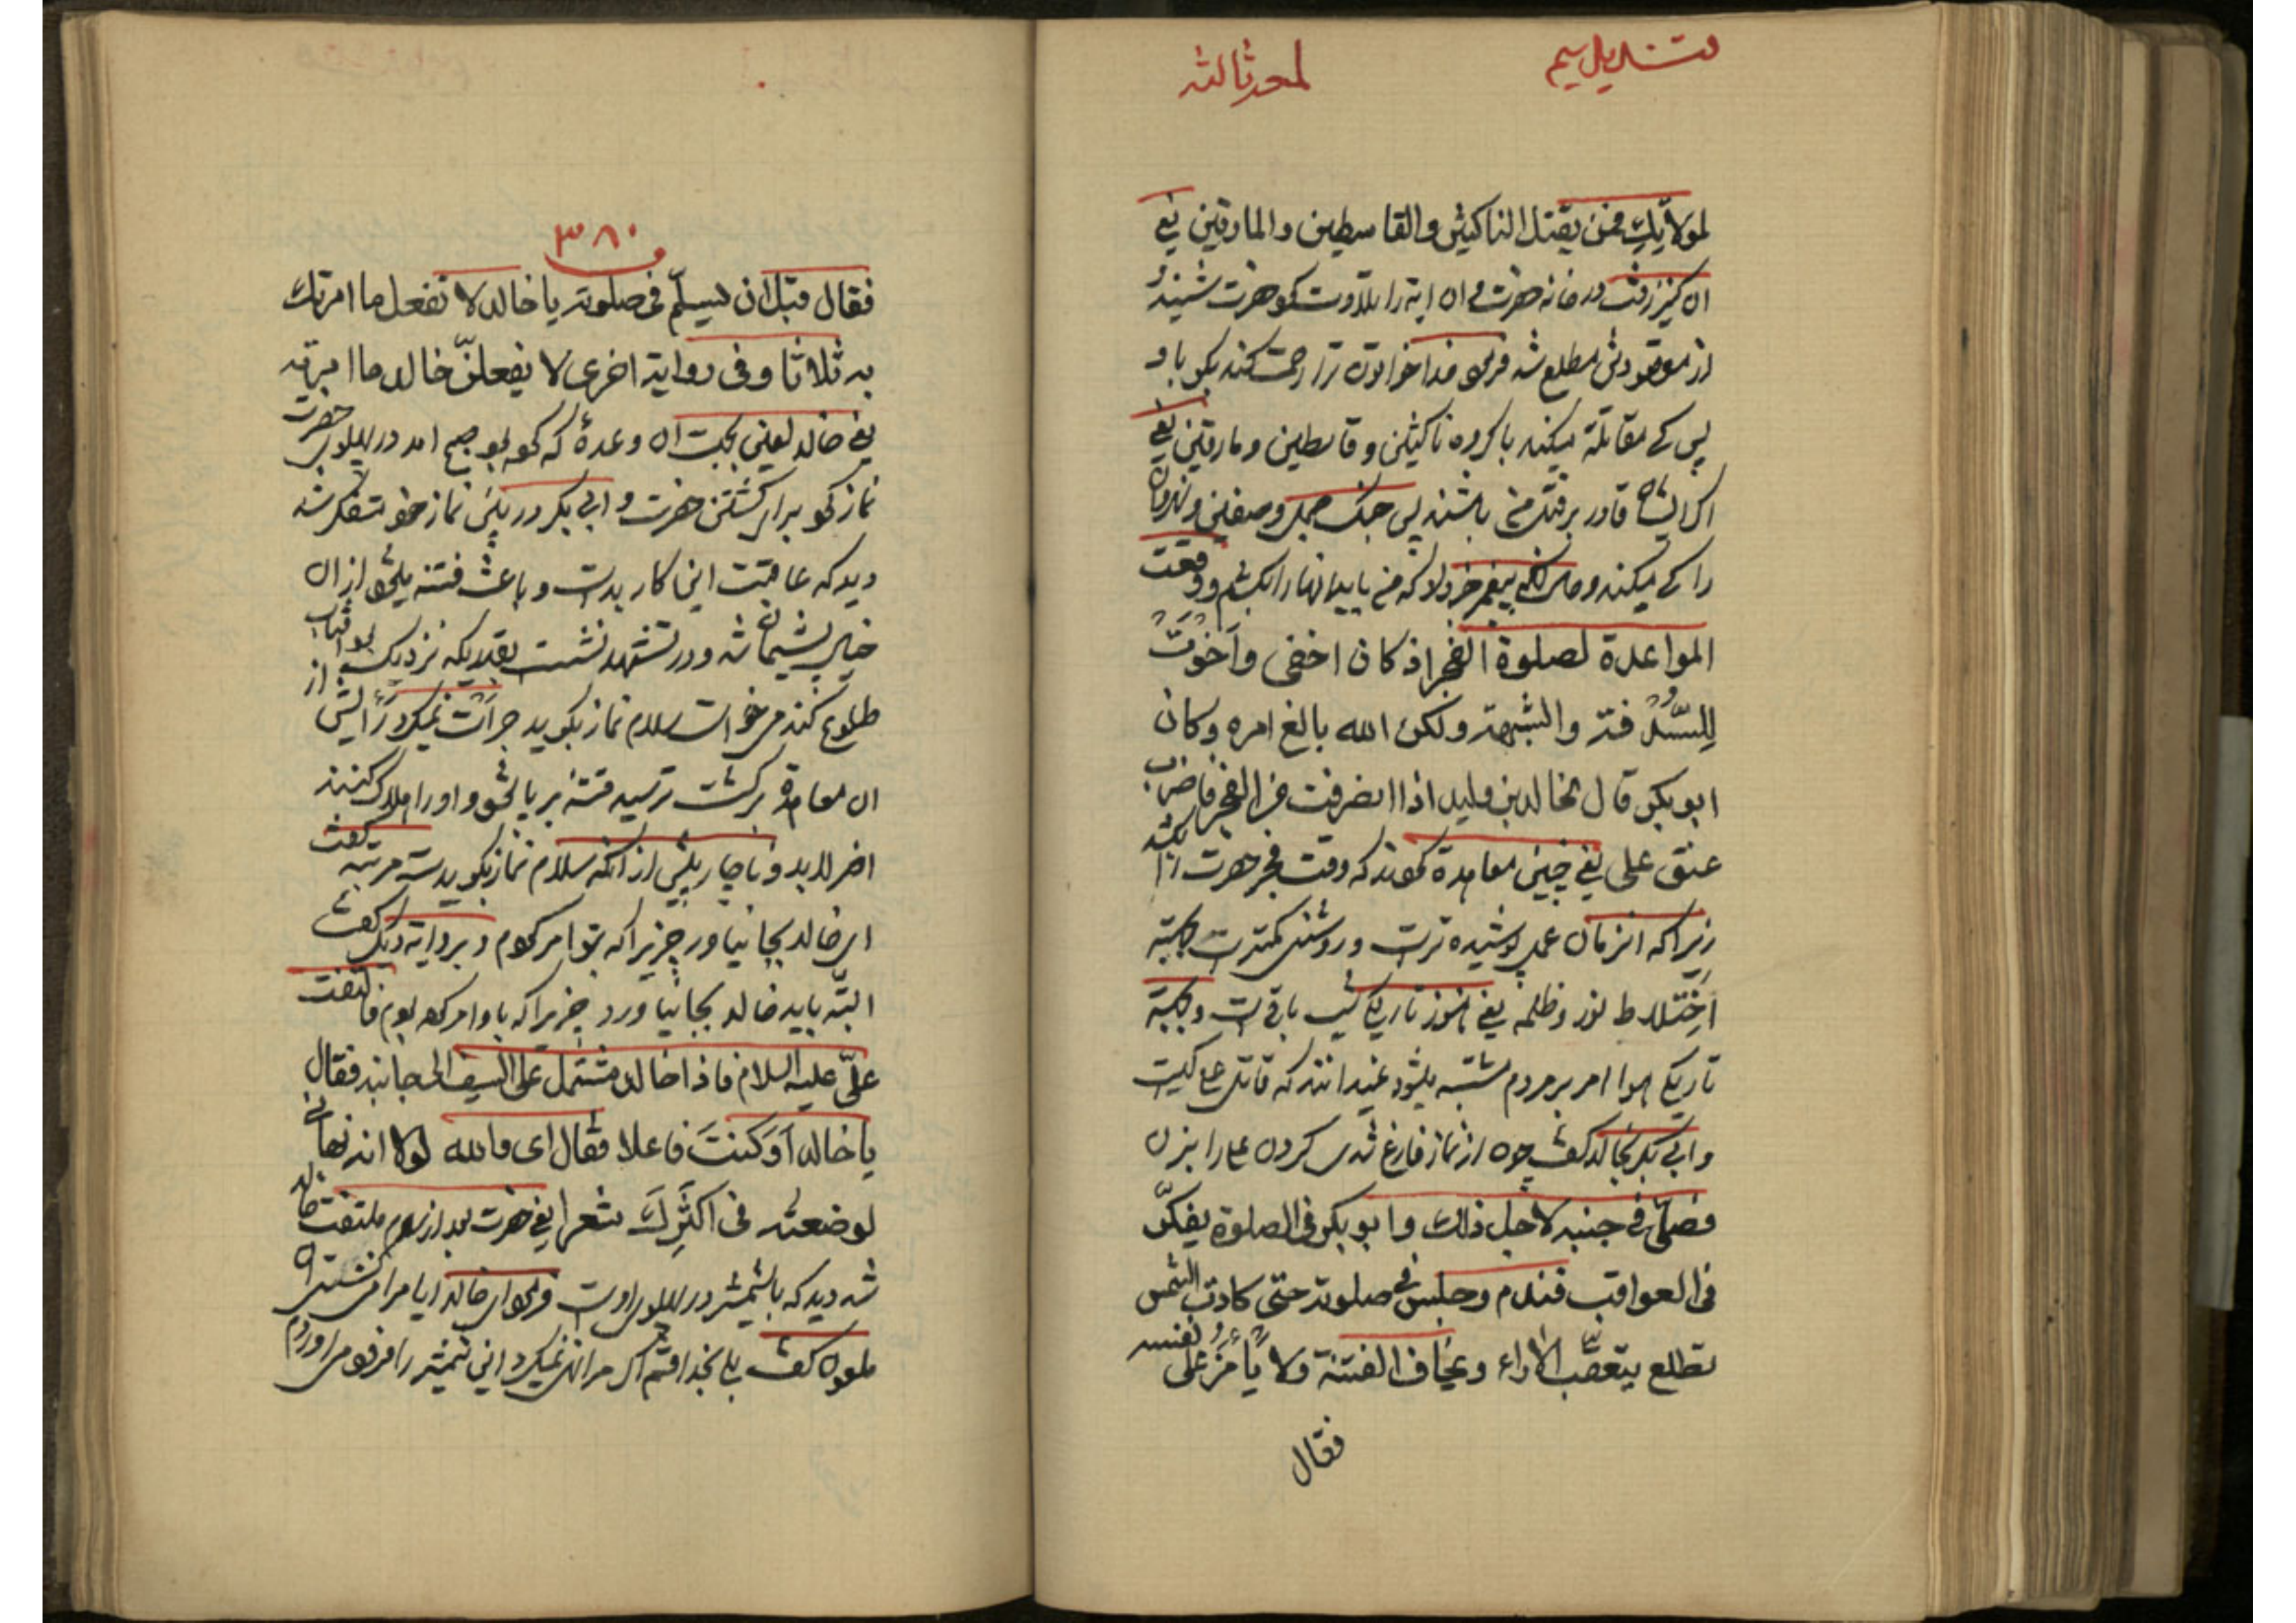 قندیل سیم
لمعه ثالثه
لمولاتك فمن يقتل الناكثين والقاسطين والمارقين يعنى
ان كنيز رفت در خانه حضرت و ان ايه را تلاوت كرد حضرت شنيد
از مقصودش مطلع شد فرمود خدا خواتون ترا رحمت كند بكو باو
پس كه مقاتله ميكند با كروه ناكثين و قاسطين و مارقين يعنى
اكر ايشان قادر بر قتل من باشند پس جنك جمل و صفين و نهروان
را كه ميكند و پيغمبر خبر داد كه من بايد انها را بكشم ووقعت
المواعدة لصلوة الفجر اذ كان اخفى واخوت
للسدفة والشبهة ولكن الله بالغ امره وكان
ابو بكر قال لخالد بن وليد اذا انصرفت من الفجر فاضرب
عنق على يعنى چنين معاهدة كردند كه وقت فجر حضرت را بكشد
زيرا كه انزمان عمل پوشيده ترست و روشنى كمترست بجهة
اختلاط نور و ظلمه يعنى هنوز تاريكى شب باقى است و بجهة
تاريكى هوا امر بر مردم مشتبه ميشود نميدانند كه قاتل على كيست
و ابى بكر بخالد كفت چون از نماز فارغ شدى كردن على را بزن
فصلى فى جنبه لاجل ذلك وابو بكر فى الصلوة يفكر
فى العواقب فندم وجلس فى صلوته حتى كادت الشمس
تطلع يتعقب الاراء ويخاف الفتنة ولا يأمن على نفسه
فقال
٣٨٠
فقال قبل ان يسلم فى صلوته يا خالد لا تفعل ما امرتك
به ثلاثا وفى رواية اخرى لا يفعلن خالد ما امرته
يعنى خالد لعين بجهة ان وعدۀ كه كرده بود صبح امد در پهلوى حضرت
نماز كرد براى كشتن حضرت و ابى بكر در بين نماز خود متفكر شد
ديد كه عاقبت اين كار بدست و باعث فتنه ميشود از ان
خيال پشيمان شد و در تشهد نشست بقدريكه نزديك بود افتاب
طلوع كند ميخواست سلام نماز بكويد جرأت نميكرد رأيش از
ان معاهدة بركشت ترسيد فتنه بر پا شود و او را هلاك كنند
اخر لابد و ناچار پيش از انكه سلام نماز بكويد سه مرتبه كفت
اى خالد بجا نياور چيزيرا كه بتو امر كردم و بروايه ديكر كفت
البته بايد خالد بجا نياورد چيزيرا كه باو امر كرده بودم فالتفت
علىّ عليه السلام فاذا خالد مشتمل على السيف الى جانبه فقال
يا خالد أوَكنتَ فاعلا فقال اى والله لولا انه نهانى
لوضعته فى اكثرك شعرا يعنى حضرت بعد از سلام ملتفت خالد
شد ديد كه با شمشير در پهلوى اوست فرمود اى خالد ايا مرا ميكشتى ان
ملعون كفت بلى بخدا قسم اكر مرا نهى نميكرد اين شمشير را فرق سر